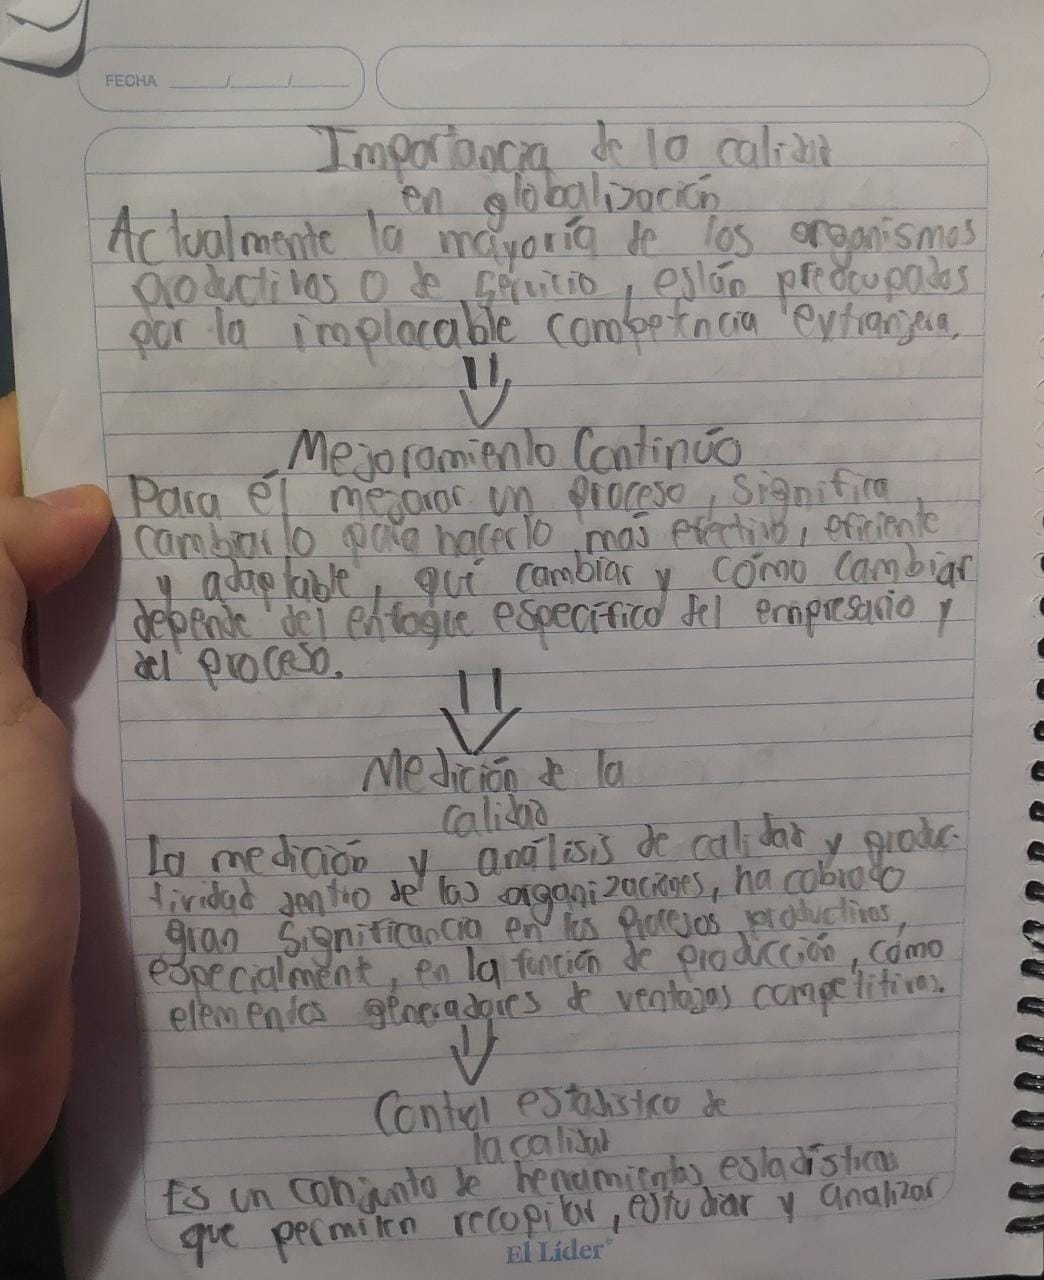 FECHA ___/___/___
Importancia de la calidad
en globalización
Actualmente la mayoría de los organismos
productivos o de servicio, están preocupados
por la implacable competencia extranjera.
Mejoramiento Continúo
Para él mejorar un proceso, significa
cambiarlo para hacerlo más efectivo, eficiente
y adaptable, qué cambiar y cómo cambiar
depende del enfoque específico del empresario y
del proceso.
Medición de la
calidad
La medición y análisis de calidad y produc-
tividad dentro de las organizaciones, ha cobrado
gran significancia en los procesos productivos,
especialmente, en la función de producción, cómo
elementos generadores de ventajas competitivas.
Control estadístico de
la calidad
Es un conjunto de herramientas estadísticas
que permiten recopilar, estudiar y analizar
El Líder